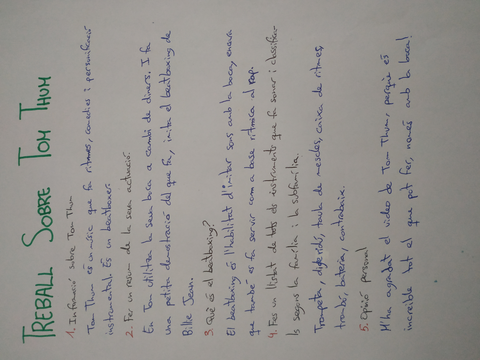 TREBALL SOBRE TOM THUM
1. Informació sobre Tom Thum
Tom Thum es un músic que fa ritmes, comedies i personificació
instrumental. És un beatboxer.
2. Fer un resum de la seva actuació.
En Tom utilitza la seva boca a cambi de diners. I fa
una petita demostració del que fa, imita el beatboxing de
Billie Jean.
3. Què és el beatboxing?
El beatboxing és l'habilitat d'imitar sons amb la boca, encara
que també es fa servir com a base rítmica al rap.
4. Fes un llistat de tots els instruments que fa sonar i classifica-
ls segons la família i la subfamília.
Trompeta, digeridú, taula de mescles, caixa de ritmes,
trombó, bateria, contrabaix.
5. Opinió personal
M'ha agradat el video de Tom Thum, perquè és
increïble tot el que pot fer, només amb la boca!